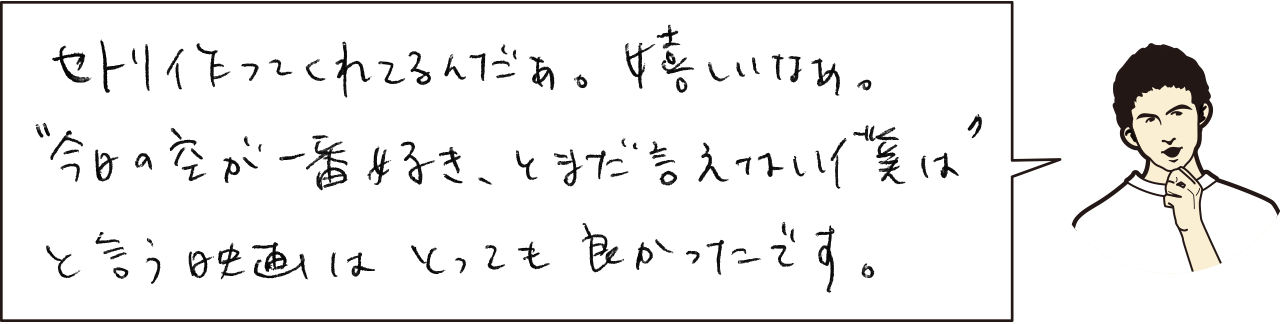 セトリ作ってくれてるんだぁ。嬉しいなぁ。
"今日の空が一番好き、とまだ言えない僕は"
と言う映画はとっても良かったです。